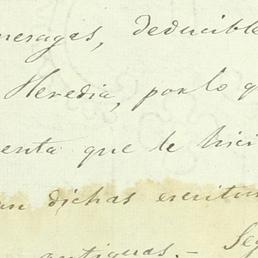 neragas, deducible
Heredia, por lo q
enta que le hici
an dichas escritu
antiguas. — Seg